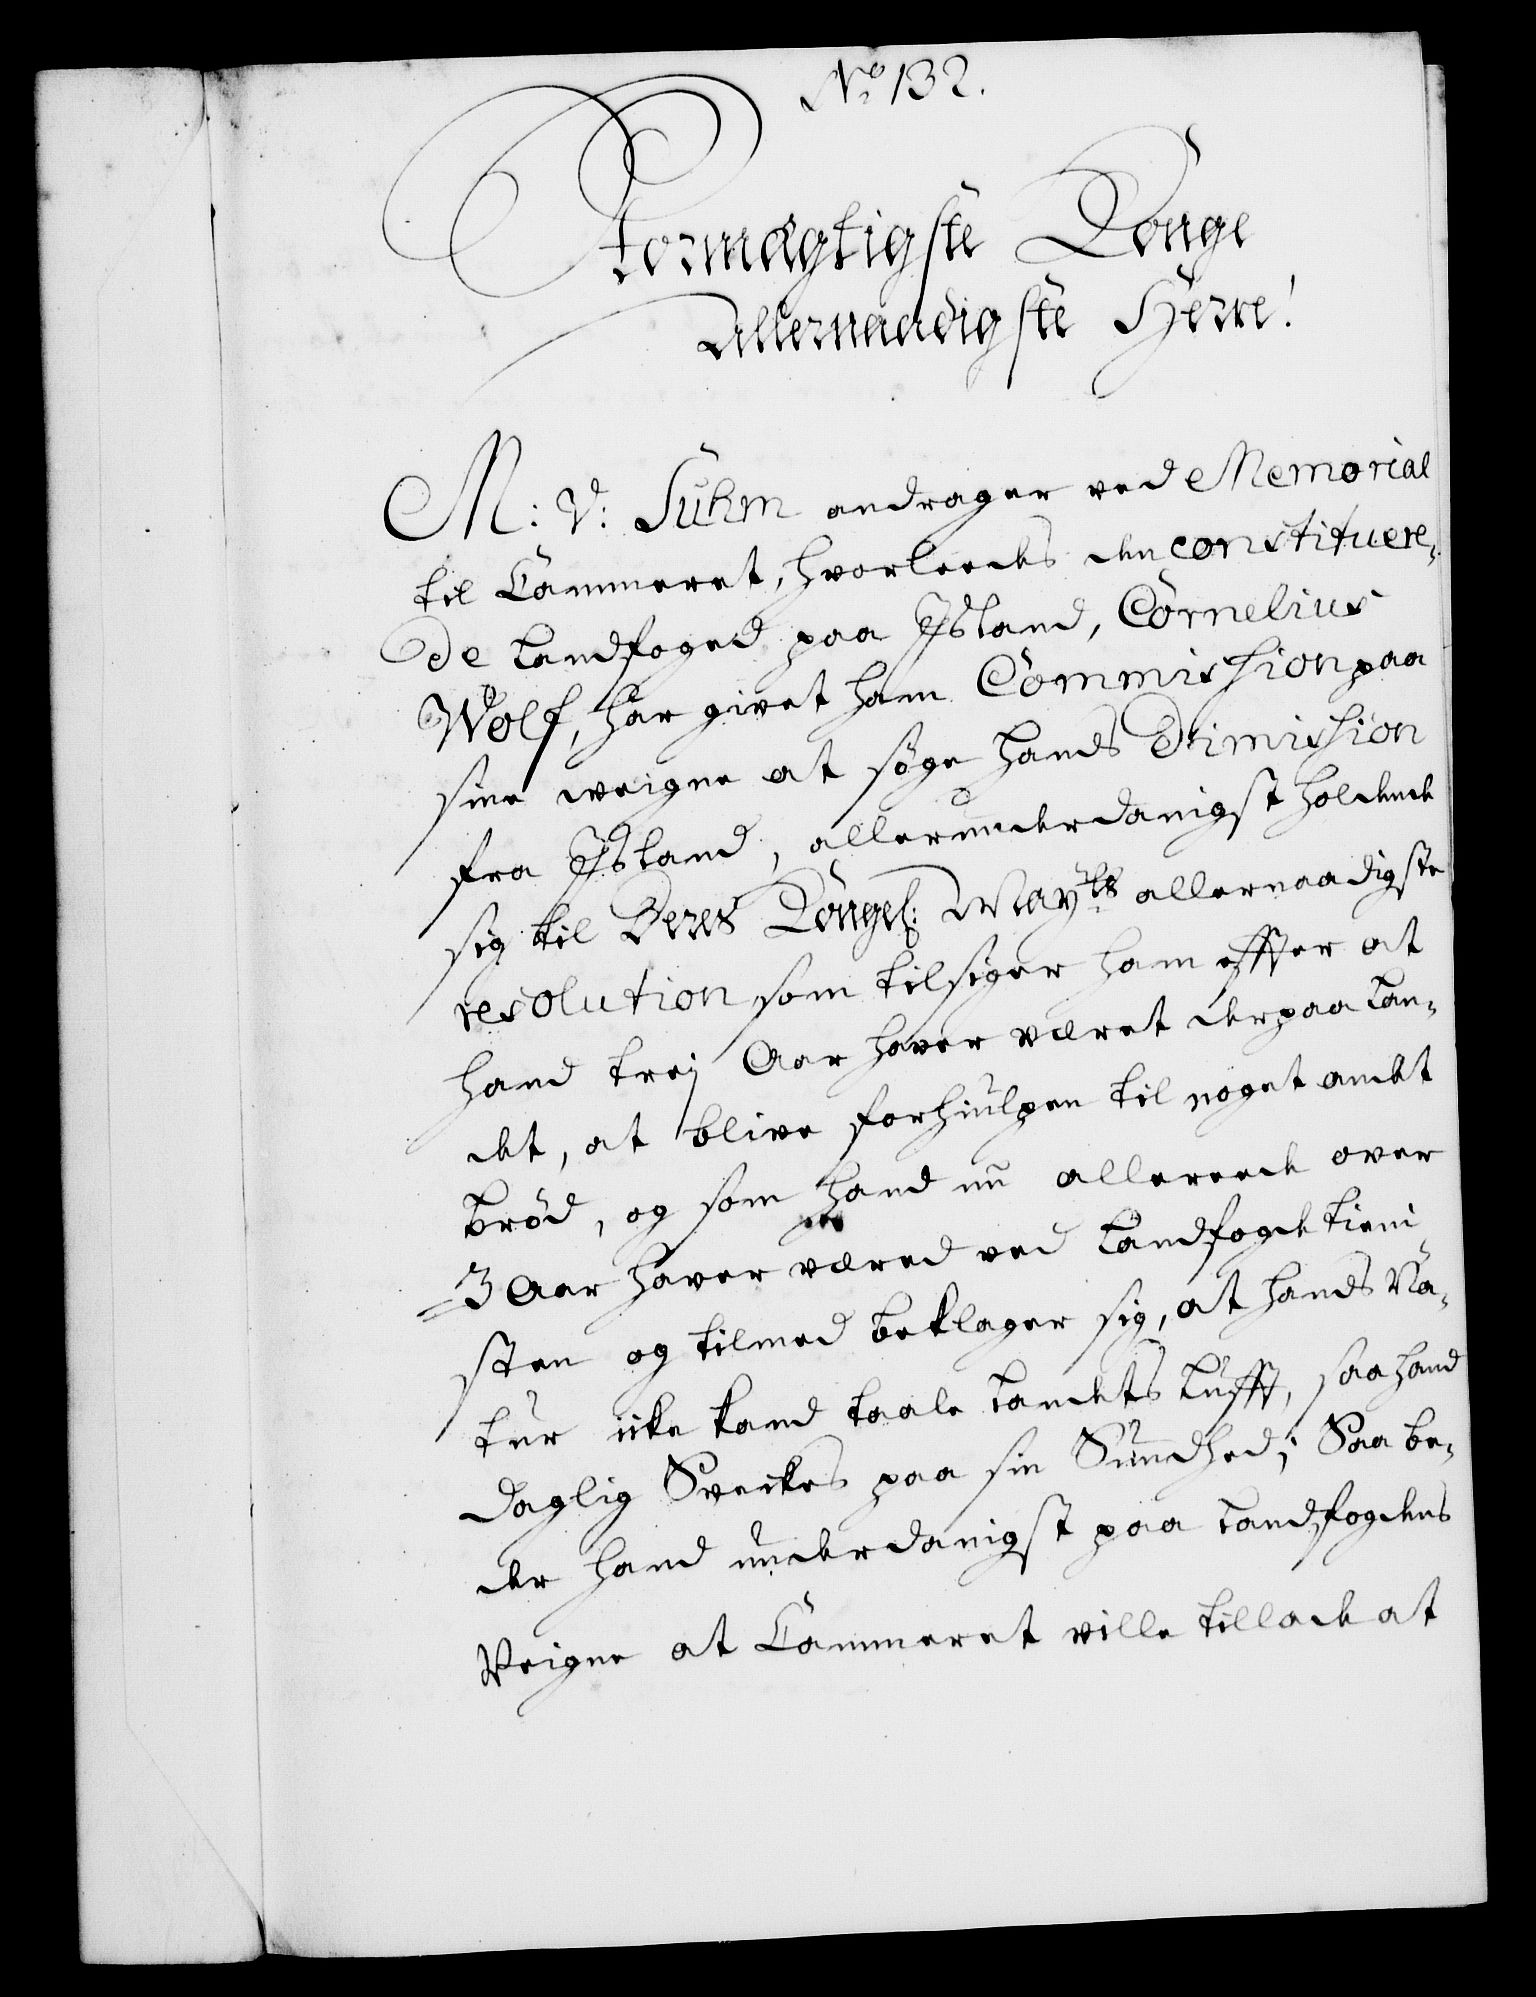 No 132.
Stormægtigste Konge
Allernaadigste Herre!
M: V: Suhm andrager ved Memorial
til Cammeret, hvorleedes den constituere-
de Landfoged paa Jsland, Cornelius
Wolf, har givet ham Commission paa
sine weigne at søge hands Dimission
fra Jsland, allerunderdanigst holdende
sig til Deres Kongel: Mayts allernaadigste
resolution som tilsiger ham effter at
hand trej Aar haver været der paa Lan-
det, at blive forhiulpen til noget andet
brød, og som hand nu allereede over
3 Aar haver været ved Landfogde tieni-
sten og tilmed beklager sig, at hands Na-
tur icke kand taale Landets Lufft, saa hand
daglig Sveckes paa sin Sundhed; Saa be-
der hand underdanigst paa Landfogdens
Veigne at Cammeret ville tillade at